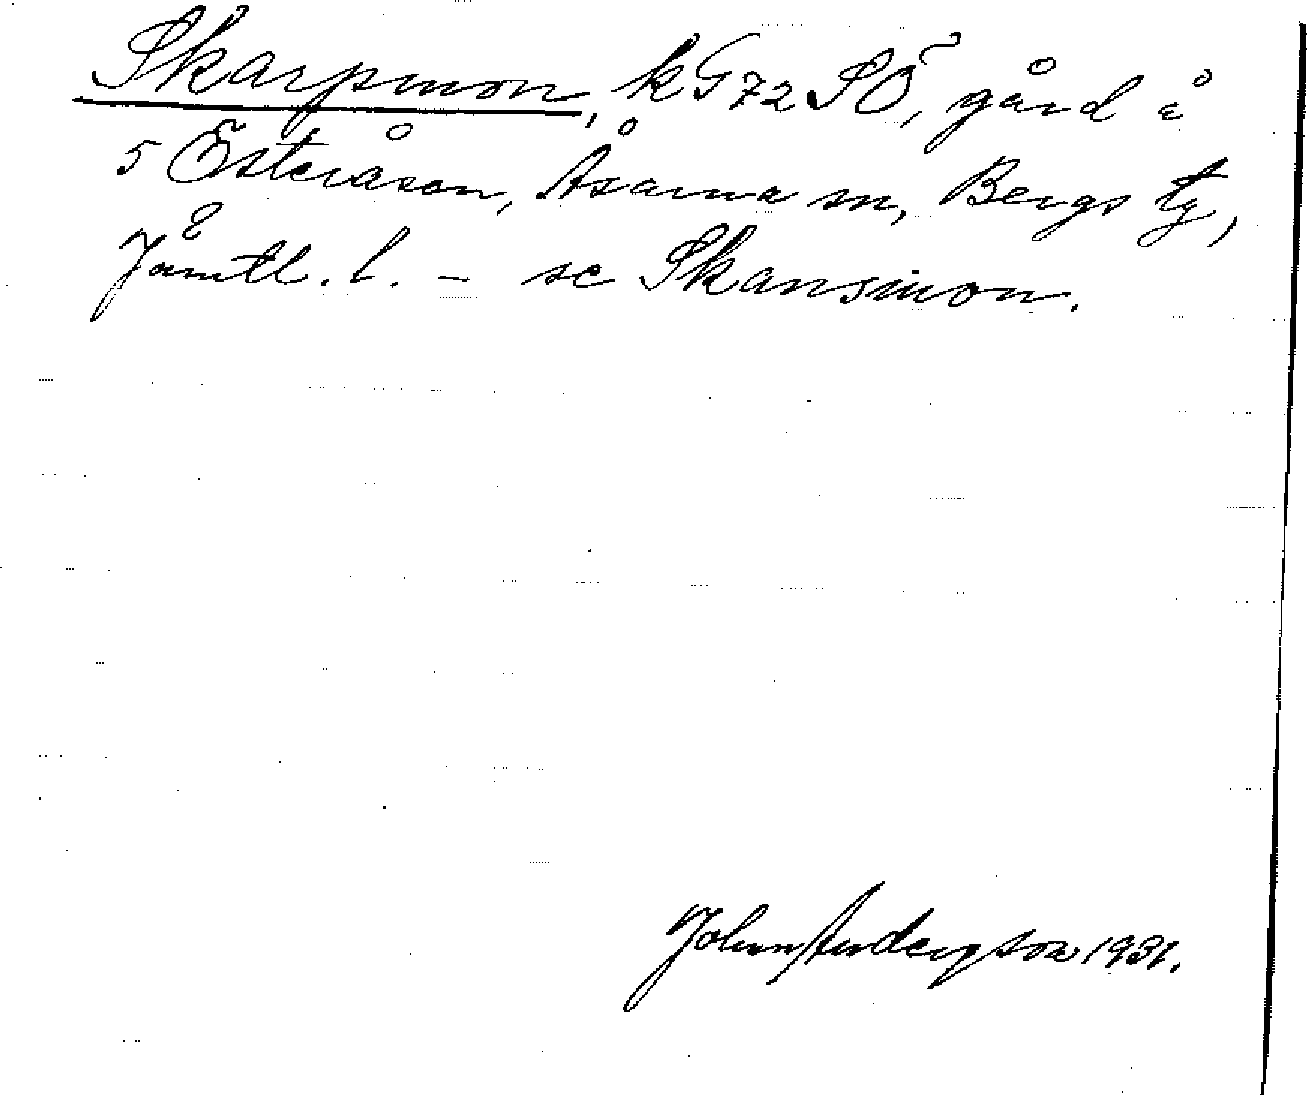 Skarpmon, kG72SÖ, gård å
5 Österåsen, Åsarna sn, Bergs tg,
Jämtl. l. - se Skansmon.
John Anderson 1931.